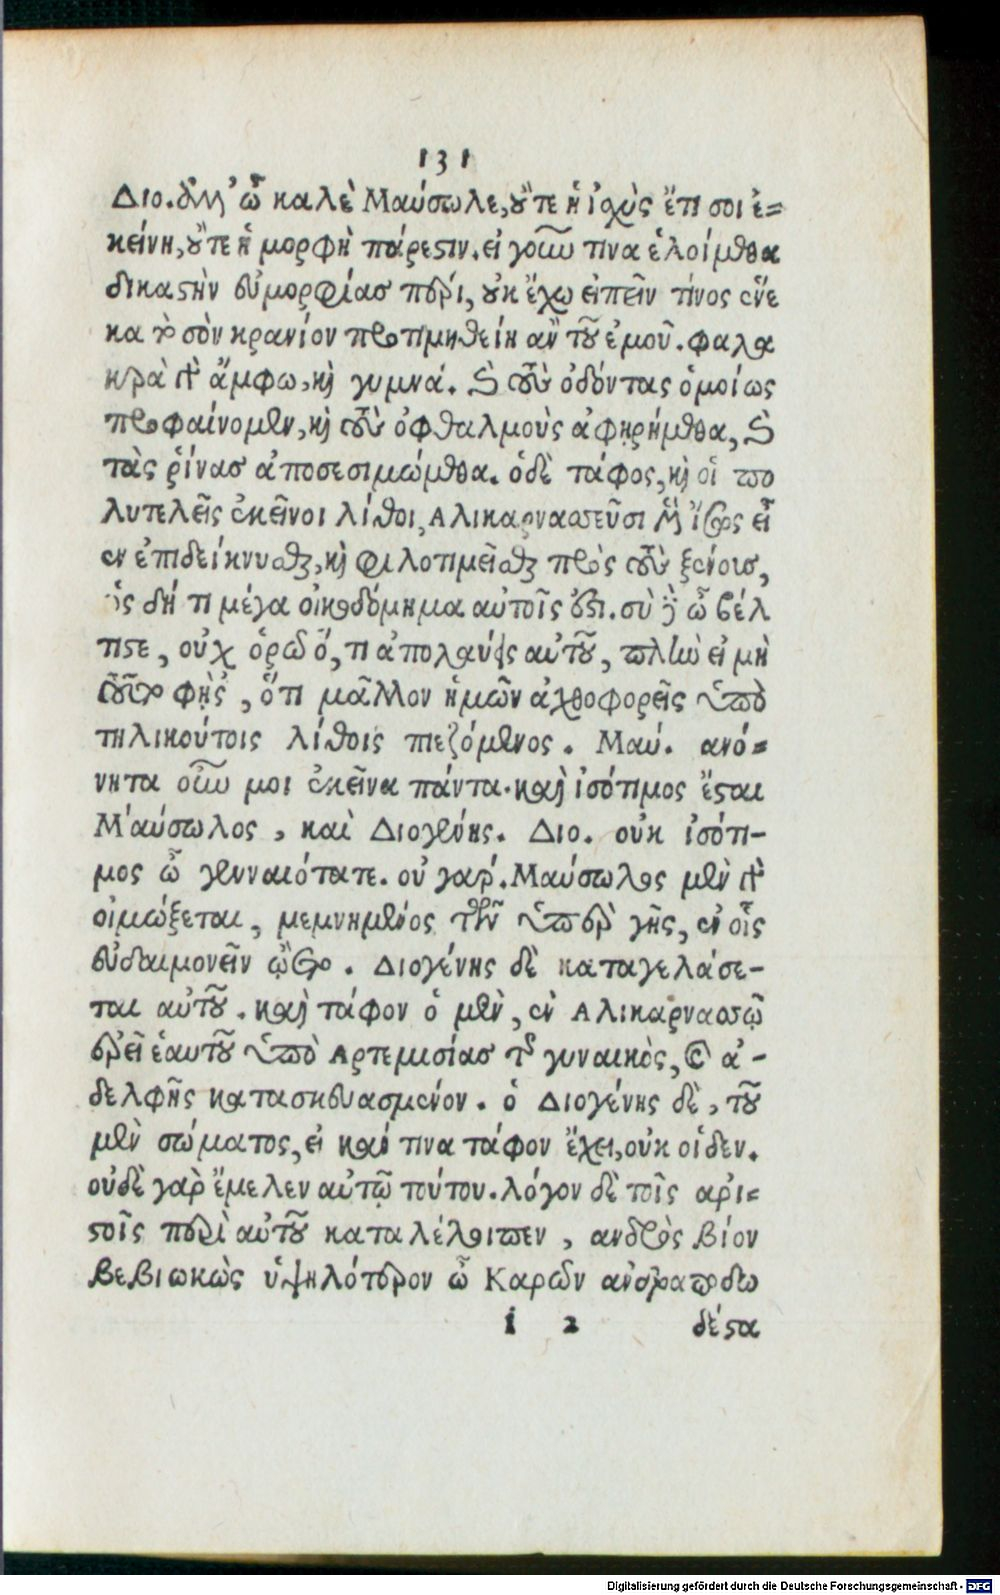 131
Διο. ἀλλ' ὦ καλὲ Μαύσωλε, οὔτε ἡ ἰχὺς ἔτι σοι ἐ=
κείνη, οὔτε ἡ μορφὴ πάρεστιν. εἰ γοῦν τινα ἑλοίμεθα
δικαστὴν εὐμορφίας πέρι, οὐκ ἔχω εἰπεῖν τίνος ἕνε
κα τὸ σὸν κρανίον προτιμηθείη ἂν τοῦ ἐμοῦ. φαλα
κρὰ γὰρ ἄμφω, καὶ γυμνά. καὶ τοὺς ὀδόντας ὁμοίως
προφαίνομεν, καὶ τοὺς ὀφθαλμοὺς ἀφῃρήμεθα, καὶ
τὰς ῥίνας ἀποσεσιμώμεθα. ὁ δὲ τάφος, καὶ οἱ πο
λυτελεῖς ἐκεῖνοι λίθοι, Αλικαρνασσεῦσι μὲν ἴσως εἶ
εν ἐπιδείκνυσθαι, καὶ φιλοτιμεῖσθαι πρὸς τοὺς ξένους,
ὡς δή τι μέγα οἰκοδόμημα αὐτοῖς ἐστι. σὺ δὲ ὦ βέλ
τιστε, οὐχ ὁρῶ ὅ, τι ἀπολαύεις αὐτοῦ, πλὴν εἰ μὴ
τοῦτο φῄς, ὅτι μᾶλλον ἡμῶν ἀχθοφορεῖς ὑπὸ
τηλικούτοις λίθοις πιεζόμενος. Μαύ. ανό=
νητα οὖν μοι ἐκεῖνα πάντα. καὶ ἰσότιμος ἔσται
Μαύσωλος, καὶ Διογένης. Διο. οὐκ ἰσότι-
μος ὦ γενναιότατε. οὐ γάρ. Μαύσωλος μὲν γὰρ
οἰμώξεται, μεμνημένος τῶν ὑπὲρ γῆς, ἐν οἷς
εὐδαιμονεῖν ᾤετο. Διογένης δὲ καταγελάσε-
ται αὐτοῦ. καὶ τάφον ὁ μὲν, ἐν Αλικαρνασσῷ
ἐρεῖ ἑαυτοῦ ὑπὸ Αρτεμισίας τῆς γυναικὸς, καὶ ἀ-
δελφῆς κατασκευασμένον. ὁ Διογένης δὲ, τοῦ
μὲν σώματος, εἰ καί τινα τάφον ἔχει, οὐκ οἶδεν.
οὐδὲ γὰρ ἔμελεν αὐτῷ τούτου. λόγον δὲ τοῖς αρί=
στοῖς περὶ αὐτοῦ καταλέλοιπεν, ανδρὸς βίον
βεβιωκὼς ὑψηλότερον ὦ Καρῶν ανδραποδω
i 2 δέστα
Digitalisierung gefördert durch die Deutsche Forschungsgemeinschaft - DFG